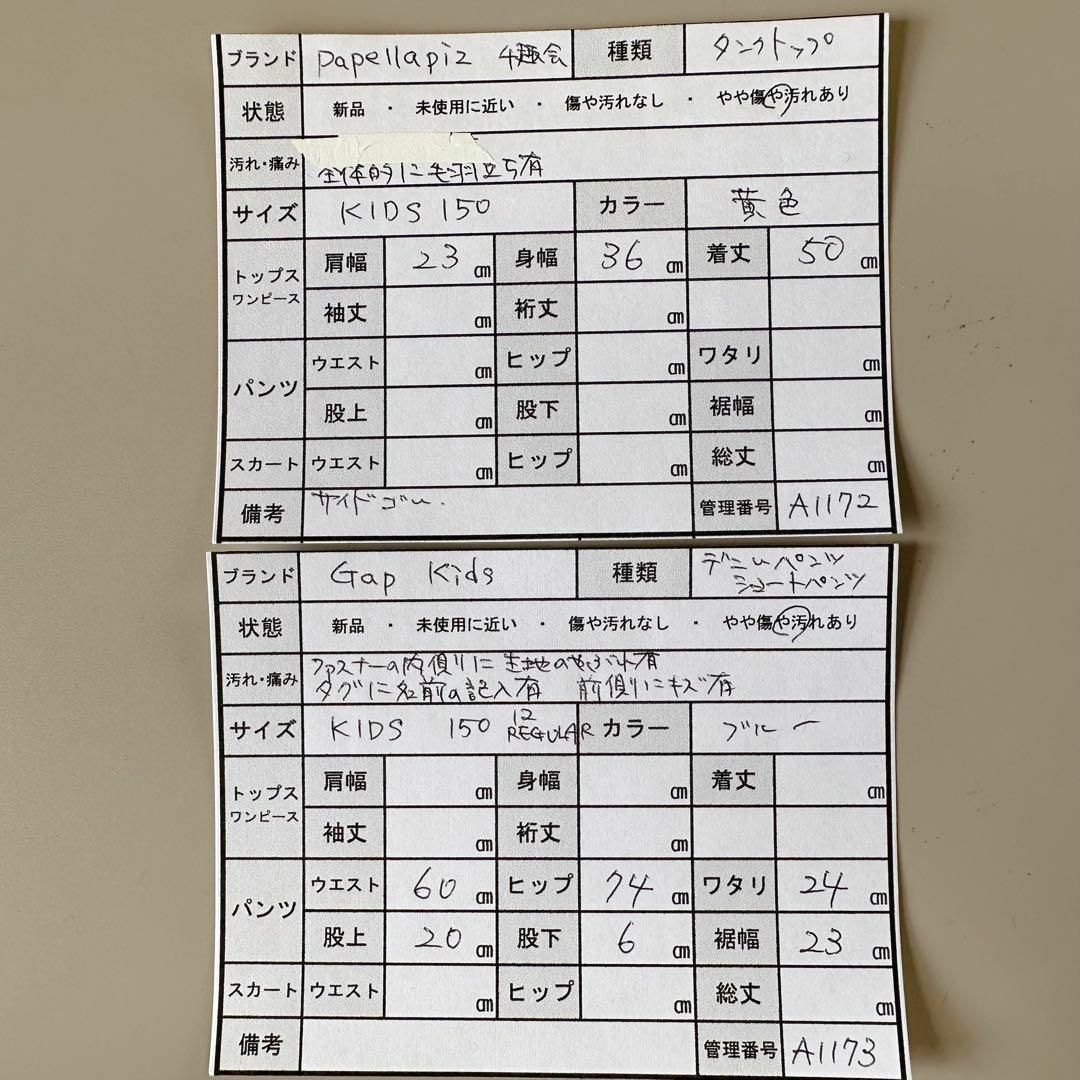 ブランド papellapiz 千趣会 種類 タンクトップ
状態 新品 ・ 未使用に近い ・ 傷や汚れなし ・ やや傷や汚れあり
汚れ・痛み 全体的に毛羽立ち有
サイズ KIDS 150 カラー 黄色
トップス ワンピース 肩幅 23 cm 身幅 36 cm 着丈 50 cm
袖丈 cm 裄丈 cm
パンツ ウエスト cm ヒップ cm ワタリ cm
股上 cm 股下 cm 裾幅 cm
スカート ウエスト cm ヒップ cm 総丈 cm
備考 サイドゴム. 管理番号 A1172
ブランド Gap Kids 種類 デニムパンツ
ショートパンツ
状態 新品 ・ 未使用に近い ・ 傷や汚れなし ・ やや傷や汚れあり
汚れ・痛み ファスナーの内側りに生地のやぶれ有
タグに名前の記入有 前側りにキズ有
サイズ KIDS 150 12 REGULAR カラー ブルー
トップス ワンピース 肩幅 cm 身幅 cm 着丈 cm
袖丈 cm 裄丈 cm
パンツ ウエスト 60 cm ヒップ 74 cm ワタリ 24 cm
股上 20 cm 股下 6 cm 裾幅 23 cm
スカート ウエスト cm ヒップ cm 総丈 cm
備考 管理番号 A1173